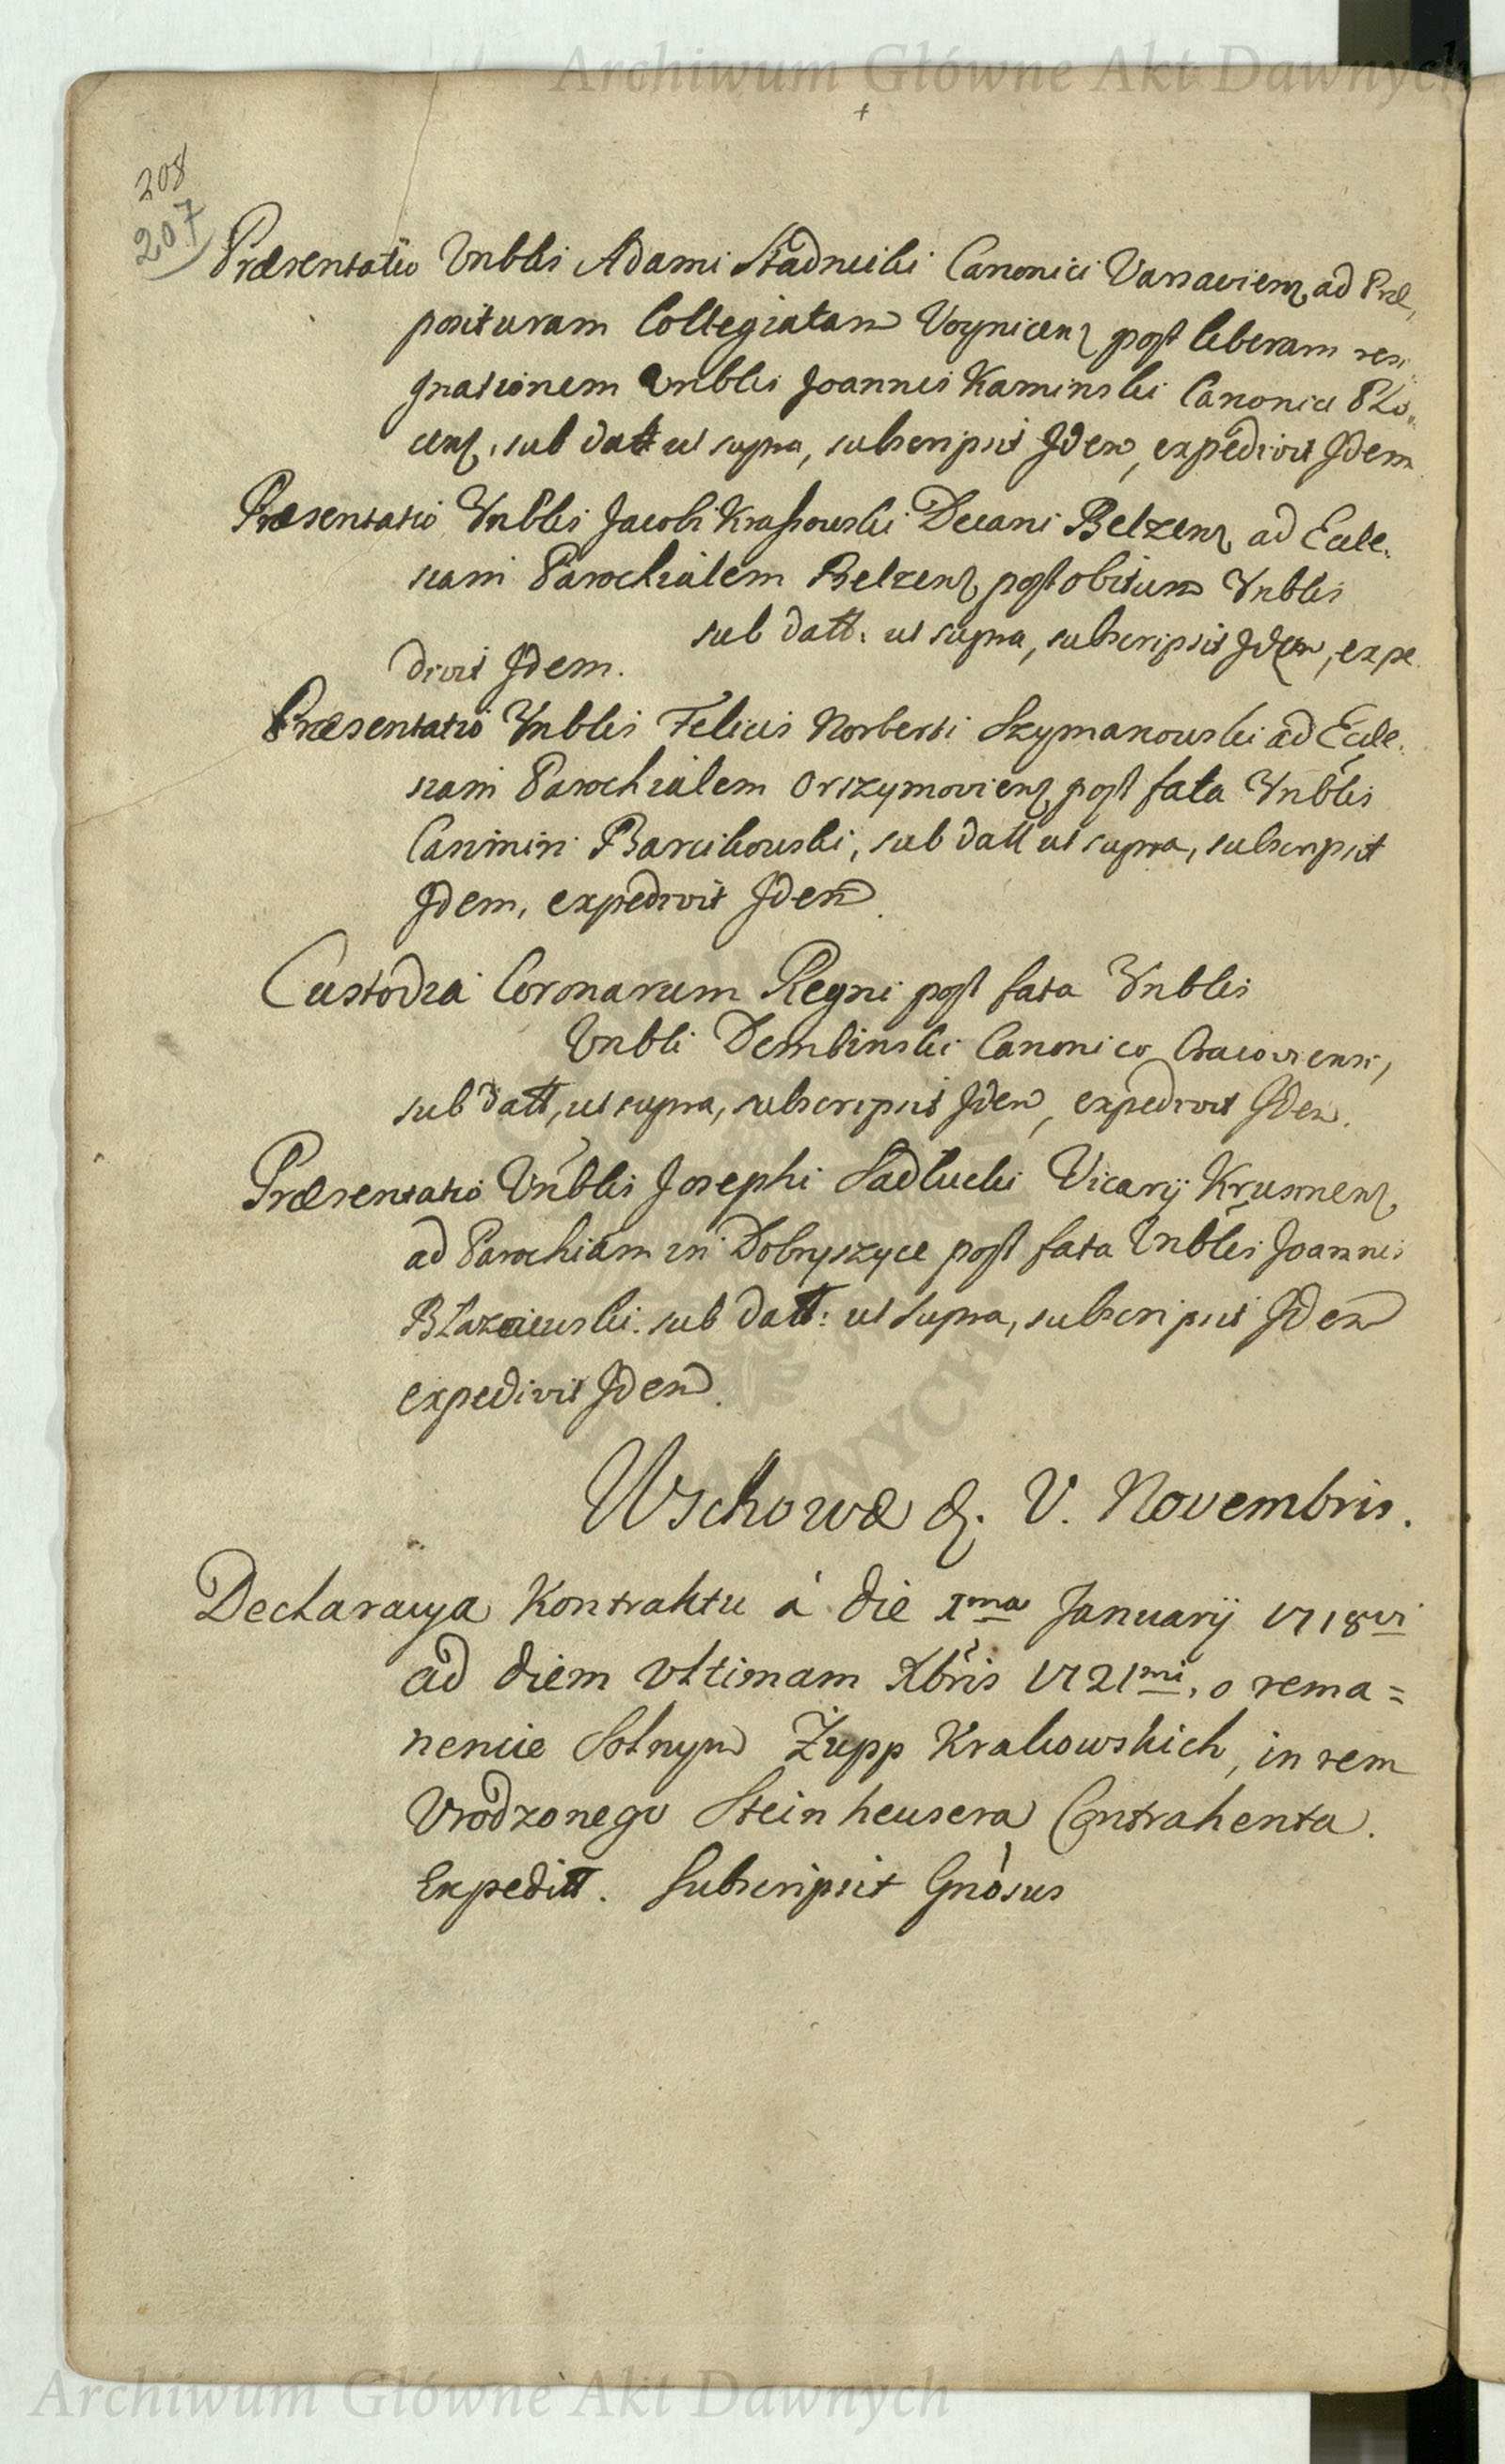 Archiwum Główne Akt Dawnych
208
207
Præsentatio Vnblis Adami Stadnicki Canonici Varsaviens ad Præ,
posituram Collegiatam Voynicens post liberam resi,
gnationem Vnblis Joannis Kaminski Canonici Plo,
cens, sub datt ut supra, subscripsit Idem, expedivit Idem
Præsentatio Vnblis Jacobi Krassowski Decani Belzens ad Eccle,
siam Parochialem Belzens post obitum Vnblis
sub datt: ut supra, subscripsit Idem, expe
divit Idem.
Præsentatio Vnblis Felicis Norberti Szymanowski ad Eccle,
siam Parochialem Orszymoviens post fata Vnblis
Casimiri Barcikowski, sub datt ut supra, subscripsit
Idem, expedivit Idem.
Custodia Coronarum Regni post fata Vnblis
Vnbli Dembinski Canonico Cracoviensi,
sub datt, ut supra, subscripsit Idem, expedivit Idem.
Præsentatio Vnblis Josephi Sadlucki Vicarij Krusinens
ad Parochiam in Dobryszyce post fata Vnblis Joannis
Błazeiewski. sub datt: ut supra, subscripsit Idem
expedivit Idem.
Wschowæ d. V. Novembris.
Declaracya Kontraktu à die 1ma Januarij 1718vi
ad diem ultimam Xbris 1721mi, o rema=
nencie Solnym Żupp Krakowskich, in rem
Vrodzonego Steinheusera Contrahenta.
Expeditt. Subscripsit Gnosus
Archiwum Główne Akt Dawnych